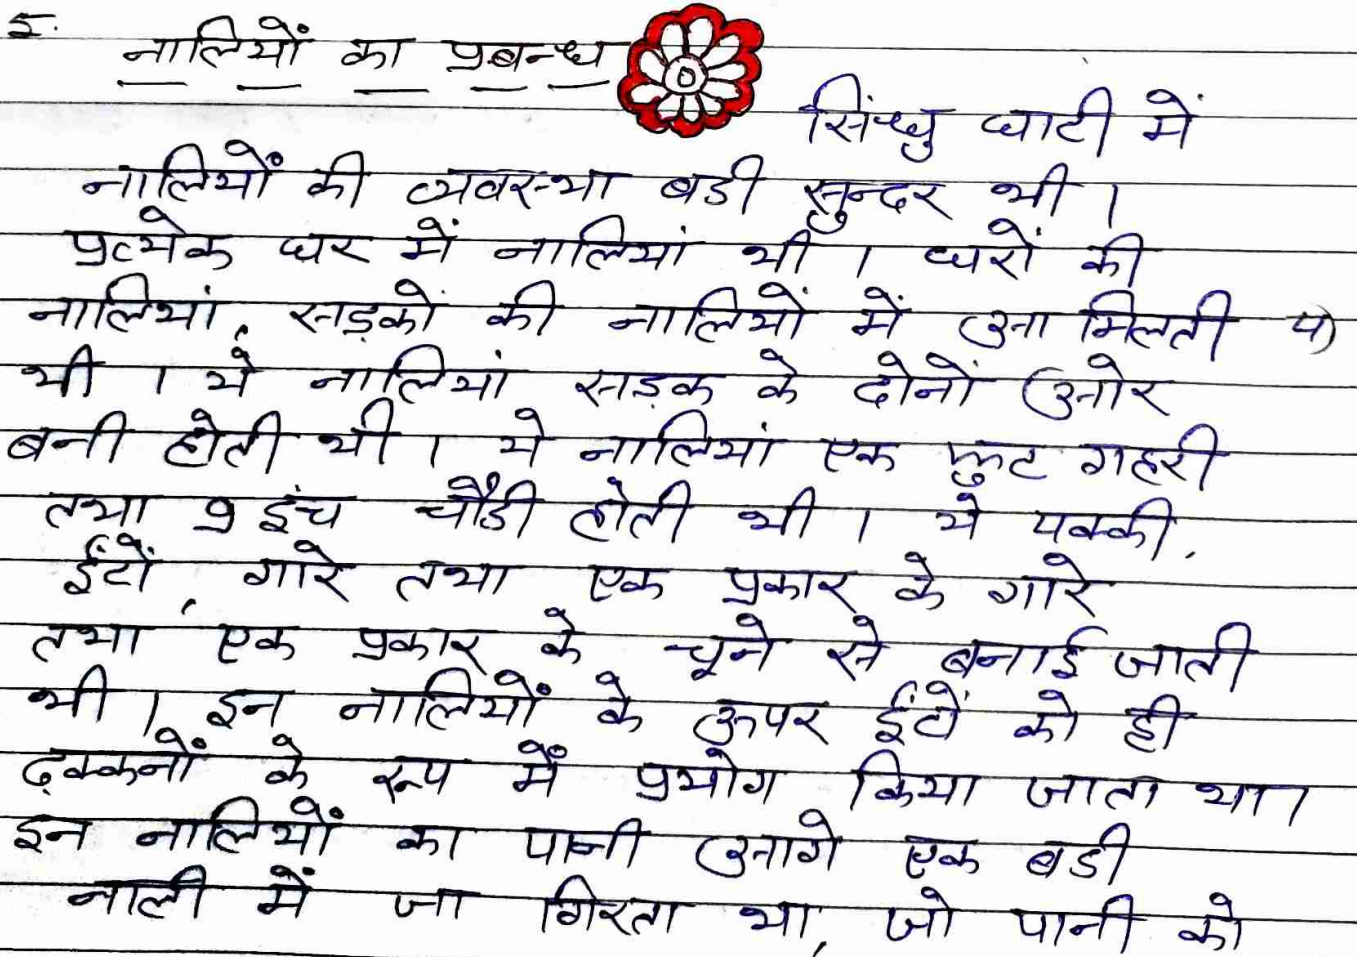 5. नालियों का प्रबन्ध
सिंन्धु घाटी में
नालियों की व्यवस्था बडी सुन्दर थी ।
प्रत्येक घर में नालियां थी । घरों की
नालियां, सड़कों की नालियों में आ मिलती
थी । ये नालियां सड़क के दोनों ओर
बनी होती थी । ये नालियां एक फुट गहरी
तथा 9 इंच चौडी होती थी । ये पक्की
ईंटों, गारे तथा एक प्रकार के गारे
तथा एक प्रकार के चूने से बनाई जाती
थी । इन नालियों के ऊपर ईंटों को ही
ढ़क्कनों के रूप में प्रयोग किया जाता था।
इन नालियों का पानी आगे एक बडी
नाली में जा गिरता था, जो पानी को